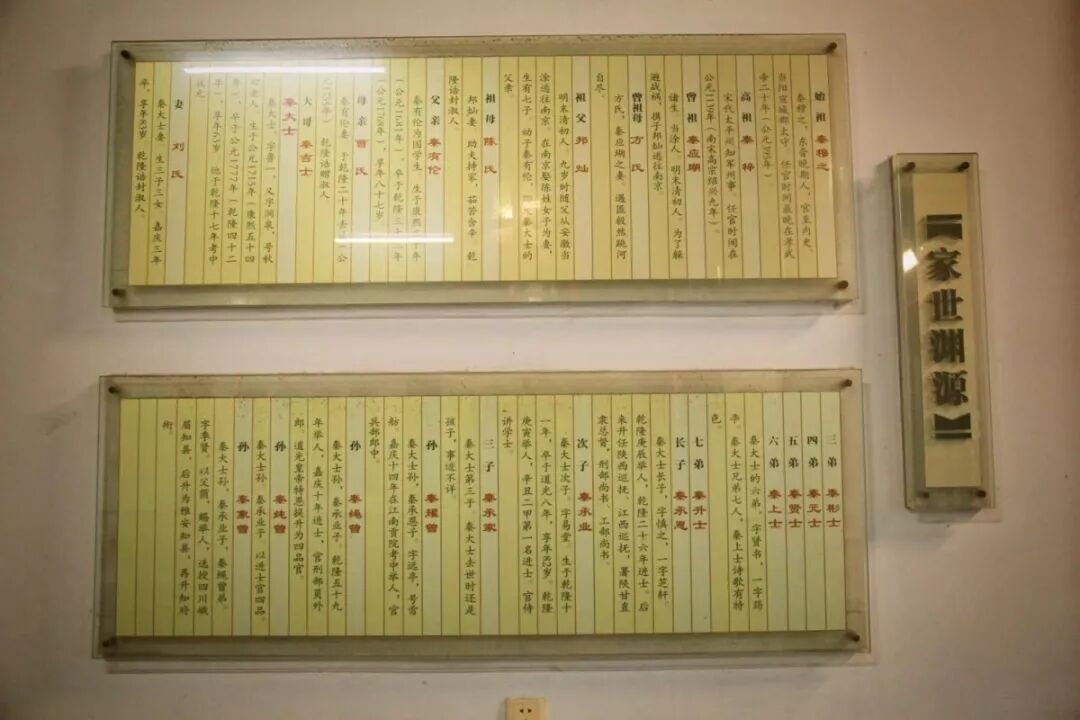 【家世渊源】
始祖 秦穆之
秦穆之，东晋晚期人，官至内史、
当阳宣城郡太守，任官时间最晚在孝武
帝二十年（公元395年）
高祖 秦梓
宋代太平阁知军州事，任官时间在
公元1139年（南宋高宗绍兴九年）。
曾祖 秦应瑚
诸生，当涂人，明末清初人。为了躲
避战祸，携子邦灿逃往南京。
曾祖母 方氏
方氏，秦应瑚之妻，遇匪毅然跳河
自尽。
祖父 邦灿
明末清初人。九岁时随父从安徽当
涂逃往南京。在南京娶陈姓女子为妻，
生有七子，幼子秦有伦，即秦大士的
父亲。
祖母 陈氏
邦灿妻，助夫持家，茹苦含辛，乾
隆诰封淑人。
父亲 秦有伦
秦有伦为国学生，生于康熙二十年
（公元1681年），卒于乾隆三十三年
（公元1768年），享年八十七岁。
母亲 曹氏
秦有伦妻，于乾隆二十年去世（公
元1755年），乾隆诰赠淑人。
大哥 秦吉士
秦大士
秦大士，字鲁一，又字涧泉，号秋
田老人，生于公元1715年（康熙五十四
年），卒于公元1777年（乾隆四十二
年），享年63岁，他于乾隆十七年考中
状元
妻 刘氏
秦大士妻，生三子三女，嘉庆三年
卒，享年83岁，乾隆诰封淑人。
三弟 秦彬士
四弟 秦元士
五弟 秦贤士
六弟 秦上士
秦大士的六弟，字贤书，一字蔼
平，秦大士兄弟七人，秦上士诗歌有特
色。
七弟 秦升士
长子 秦承恩
秦大士长子，字慎之，一字芝轩。
乾隆庚辰举人，乾隆二十六年进士。后
来升任陕西巡抚、江西巡抚，署陕甘直
隶总督，刑部尚书、工部尚书。
次子 秦承业
秦大士次子，字易堂，生于乾隆十
一年，卒于道光八年，享年82岁。乾隆
庚寅举人，辛丑二甲第一名进士。官侍
讲学士。
三子 秦承家
秦大士第三子，秦大士去世时还是
孩子，事迹不详。
孙 秦耀曾
秦大士孙，秦承恩子。字远亭，号雪
舫。嘉庆十四年在江南贡院考中举人，官
兵部郎中。
孙 秦绳曾
秦大士孙，秦承业子。乾隆五十九
年举人，嘉庆十年进士，官刑部员外
郎，道光皇帝特恩提升为四品官。
孙 秦纯曾
秦大士孙，秦承业子。以进士官四品。
孙 秦象曾
秦大士孙，秦承业子，秦绳曾弟。
字季贤。以父荫，赐举人，选授四川峨
眉知县，后升为雅安知县，再升知府
衔。